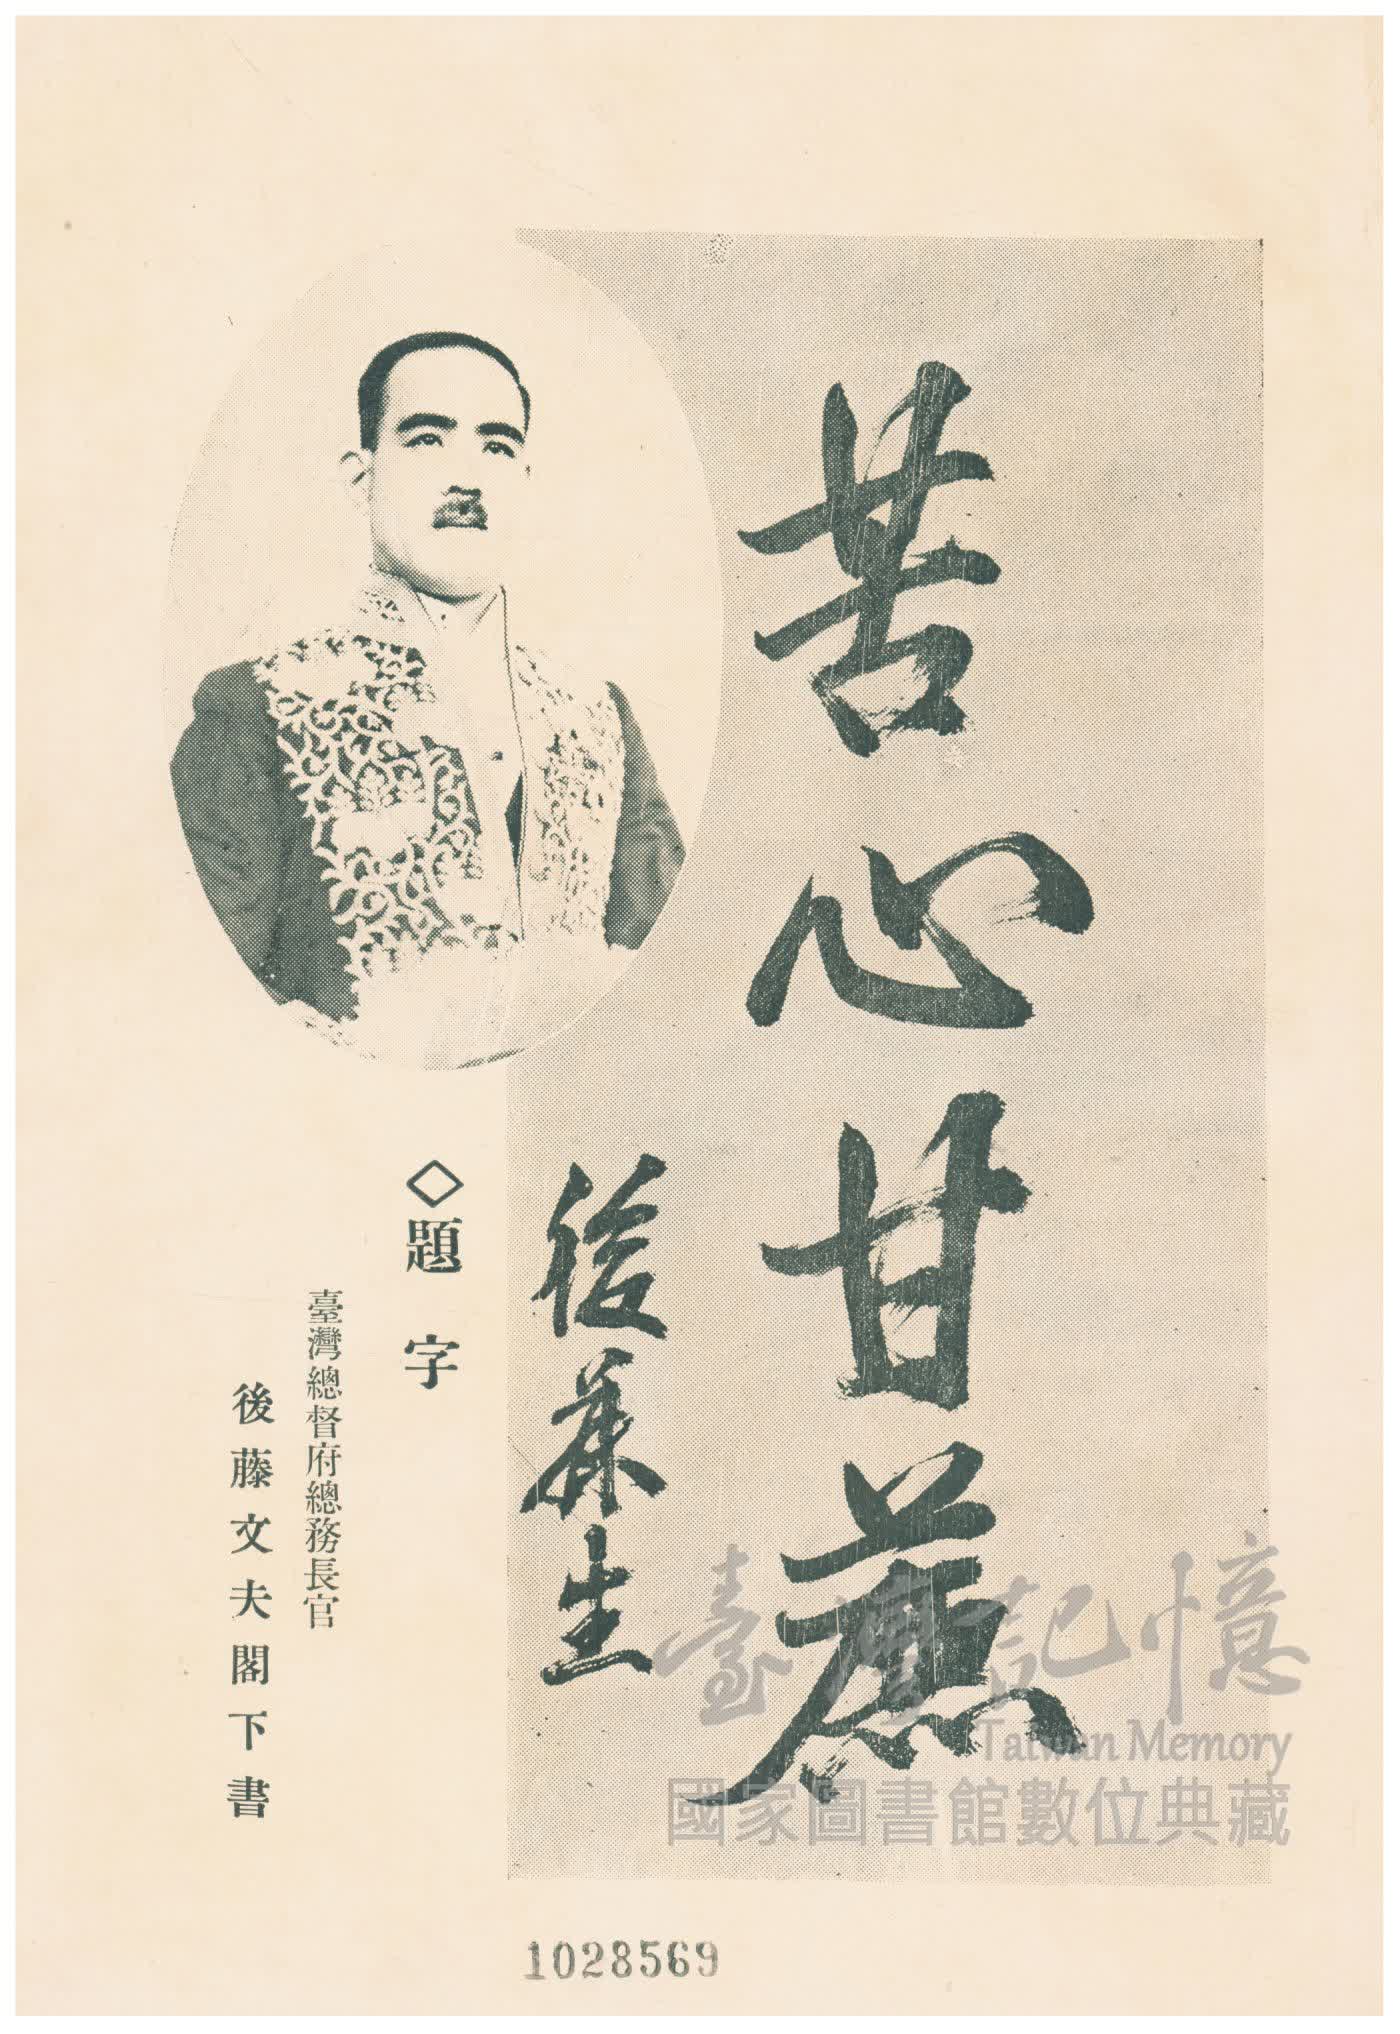 苦心甘蔗
後藤生
◇題字
臺灣總督府總務長官
後藤文夫閣下書
臺灣記憶
Taiwan Memory
國家圖書館數位典藏
1028569